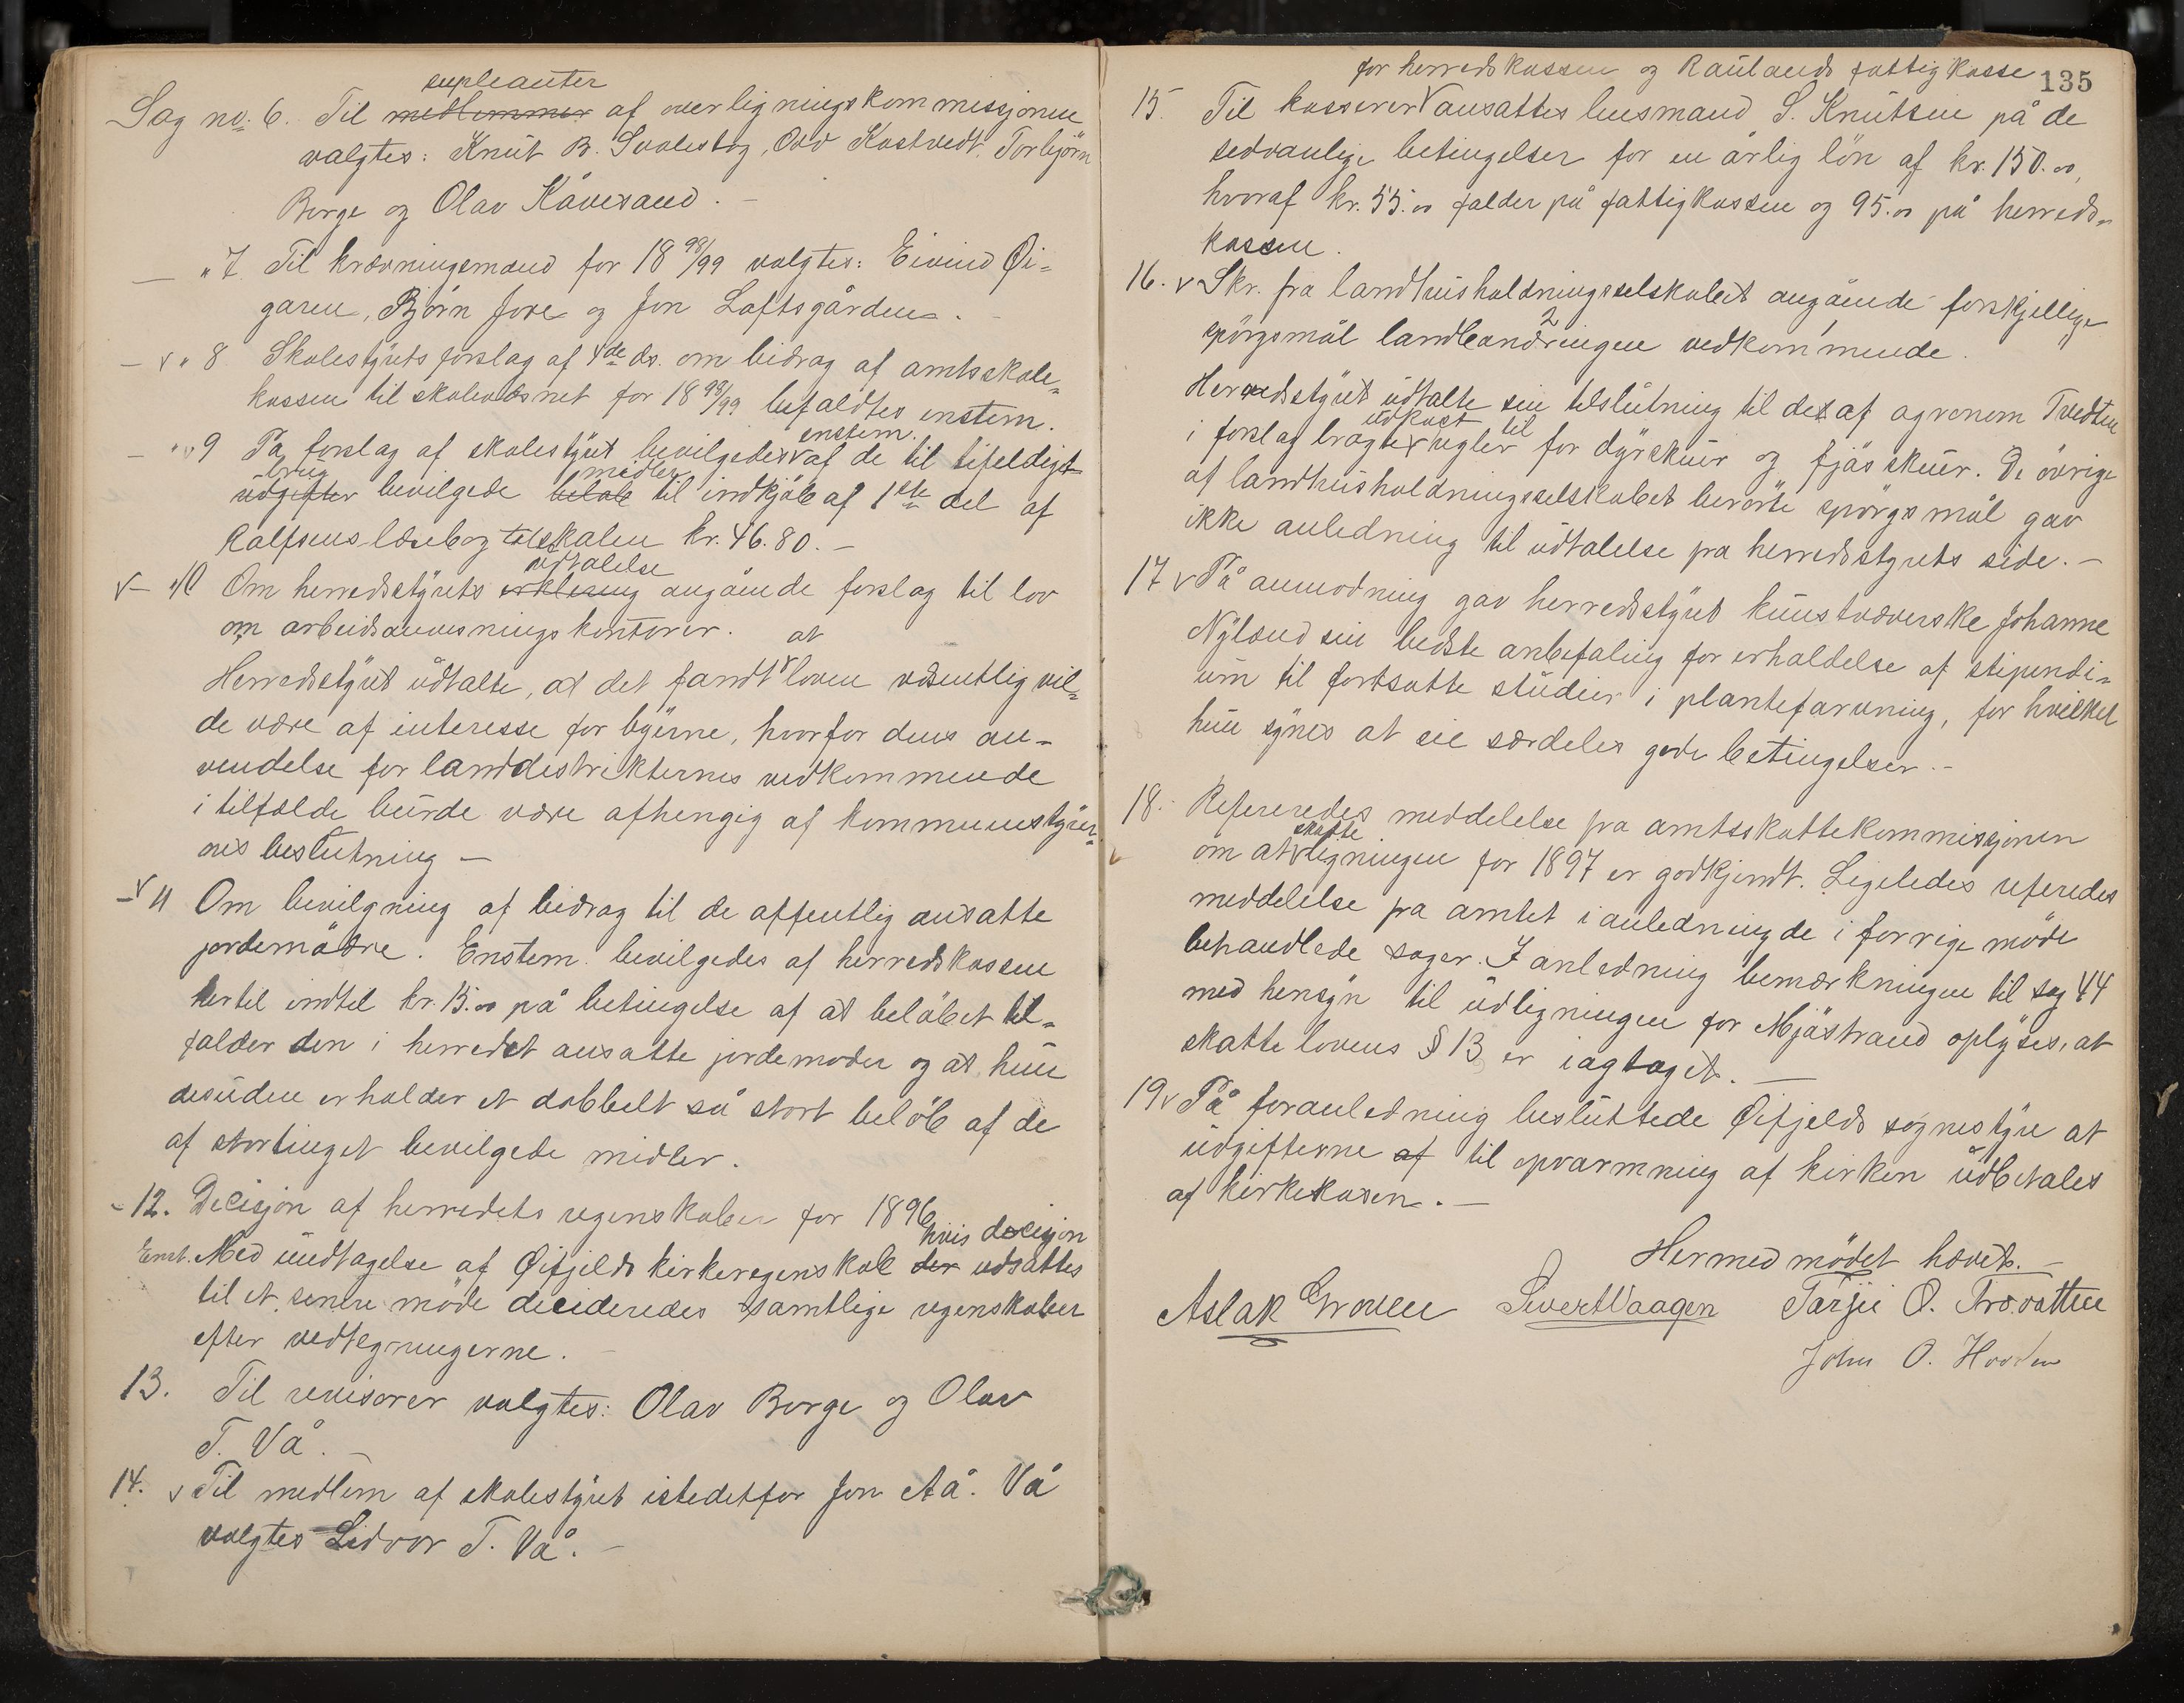 supleanter
Sag no. 6. Til medlemmer af overligningskommissjonen
valgtes: Knut B. Svalestog, Ovv Kostvedt, Torbjörn
Borge og Olav Kåvesand. -
— " 7. Til krævningsmænd for 18 98/99 valgtes: Eivind Öi-
garen, Björn Jore og Jon Loftsgården. -
— v " 8 Skolestyrets forslag af 4de ds. om bidrag af amtsskole-
kassen til skolevæsnet for 18 98/99 bifaldtes enstem.
enstem.
— " v 9 På forslag af skolestyret bevilgedes v af de til tifeldigt
brug midler
udgifter bevilgede beløb til indkjöb af 1ste del af
Rolfsens læsebog til skolen kr. 46.80. -
udtalelse
v — 10 Om herredsstyrets erklæring angående forslag til lov
om arbeidsanvisningskontorer.
at
Herredsstyret udtalte, at det fandt v loven væsentlig vil-
de være af interesse for byerne, hvorfor dens an-
vendelse for landdistrikternes vedkommende
i tilfælde burde være afhengig af kommunestyrer-
nes beslutning —
— v 11 Om bevilgning af bidrag til de offentlig ansatte
jordemödre. Enstem. bevilgedes af herredskassen
hertil indtil kr. 15.00 på betingelse af at belöbet til-
falder den i herredet ansatte jordemoder og at hun
desuden erholder et dobbelt så stort belöb af de
af stortinget bevilgede midler.
- 12. Decisjon af herredets regnskaber for 1896
hvis decisjon
Enst. Med undtagelse af Öifjelds kirkeregnskab der udsattes
til et senere möde decideredes samtlige regnskaber
efter vedtegningerne. -
13. Til revisorer valgtes: Olav Borge og Olav
T. Vå. -
14. v Til medlem af skolestyret istedetfor Jon Aå. Vå
valgtes Lidvor T. Vå. -
for herredskassen og Raulands fattigkasse
135
15. Til kasserer V ansattes lensmand S. Knutsen på de
sedvanlige betingelser for en årlig lön af kr. 150.00,
hvoraf kr. 55.00 falder på fattigkassen og 95.00 på herreds-
kassen.
16. v Skr. fra landhusholdningsselskabet angående forskjellige
2
spörgsmål landboandringen vedkommende.
Herredsstyret udtalte sin tilslutning til det af agronom Tvedten
udkast til
i forslag bragte v regler for dyrskuer og fjösskuer. De övrige
af landhusholdningsselskabet berörte spörgsmål gav
ikke anledning til udtalelse fra herredsstyrets side. —
17 v På anmodning gav herredsstyret kunstvæverske Johanne
Nyland sin bedste anbefaling for erholdelse af stipendi-
um til fortsatte studier i plantefarvning, for hvilket
hun synes at eie særdeles gode betingelser. -
18. Refereredes meddelelse fra amtsskattekommissjonen
skatte
om at v ligningen for 1897 er godkjendt. Ligeledes referedes
meddelelse fra amtet i anledning de i forrige möde
behandlede sager. I anledning bemærkningen til sag 44
med hensyn til udligningen for Mjöstrand oplyses, at
skattelovens § 13 er iagtaget. —
19 v På foranledning besluttede Öifjelds sognestyre at
udgifterne af til opvarmning af kirken udbetales
af kirkekasen. —
Hermed mödet hævet. —
Aslak Groven Sivert Vaagen Tarjei O. Trovatten
John O.